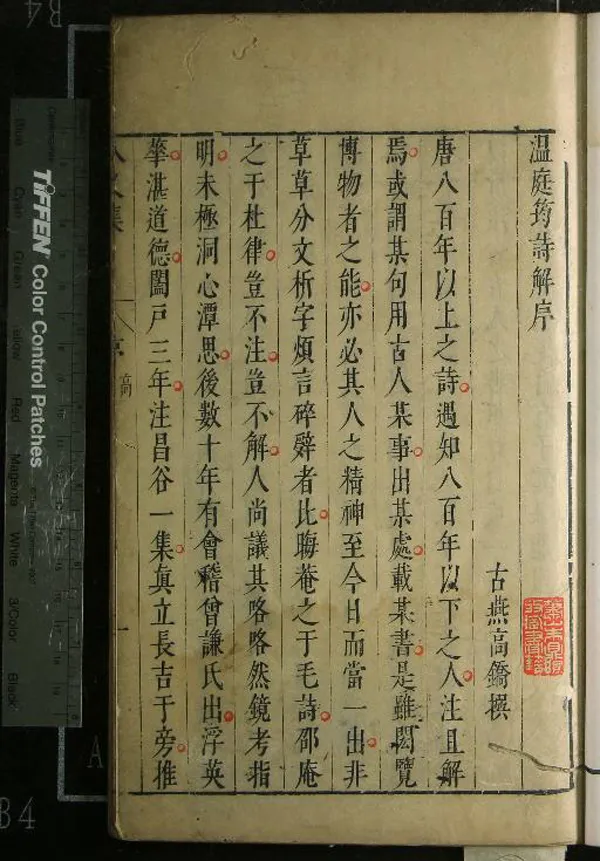 温庭筠詩解序
古燕高鐈撰
唐八百年以上之詩遇知八百年以下之人注且解
焉或謂某句用古人某事出某處載某書是雖閎覽
博物者之能亦必其人之精神至今日而當一出非
草草分文析字煩言碎辭者比晦菴之于毛詩邵庵
之于杜律豈不注豈不解人尚議其咯咯然鏡考指
明未極洞心潭思後數十年有會稽曾謙氏出浮英
華湛道德闔戸三年注昌谷一集眞立長吉于旁推
序
高
一
TIFFEN Color Control Patches
Blue
Cyan
Green
Yellow
Red
Magenta
White
3/Color
Black
B4
A
B4